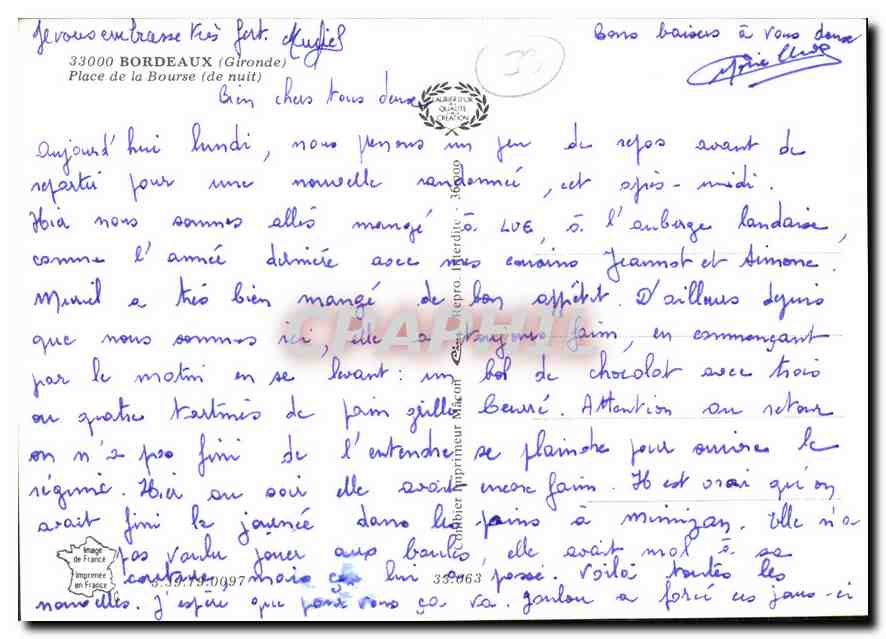 Je vous embrasse très fort. Muriel
Bons baisers à vous deux
33000 BORDEAUX (Gironde)
Place de la Bourse (de nuit)
LAURIER D'OR
DE LA
QUALITÉ
CRÉATION
Bien chers tous deux
Aujourd'hui lundi, nous prenons un peu de repos avant de
repartir pour une nouvelle randonnée, cet après-midi.
Hier nous sommes allés mangé à LUE, à l'auberge landaise,
comme l'année dernière avec mes cousins Jeannot et Simone.
Muriel a très bien mangé de bon appétit. D'ailleurs depuis
que nous sommes ici, elle a toujours faim, en commençant
par le matin en se levant : un bol de chocolat avec trois
ou quatre tartines de pain grillé beurré. Attention au retour
on n'a pas fini de l'entendre se plaindre pour suivre le
régime. Hier au soir elle avait encore faim. Il est vrai qu'on
avait fini la journée dans les pins à Mimizan. Elle n'a
pas voulu jouer aux boules, elle avait mal à sa
couture, mais ça lui a passé. Voilà toutes les
nouvelles. J'espère que pour vous ça va. Loulou a forcé ces jours-ci
Image
de France
Imprimée
en France
3.39.79.0097
33.063
Combier Imprimeur Mâcon
Cim
Repro. Interdite
CPAPHIL